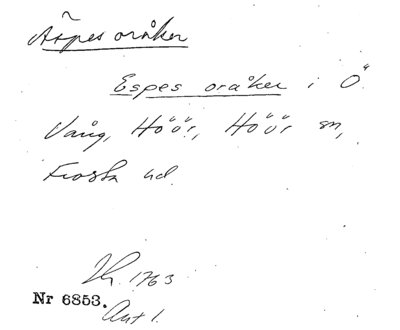 Äspes oråker
Espes oråker i Ö
Vång, Höör, Höör sn,
Frosta hd
1763
Nr 6853.
Akt 1.